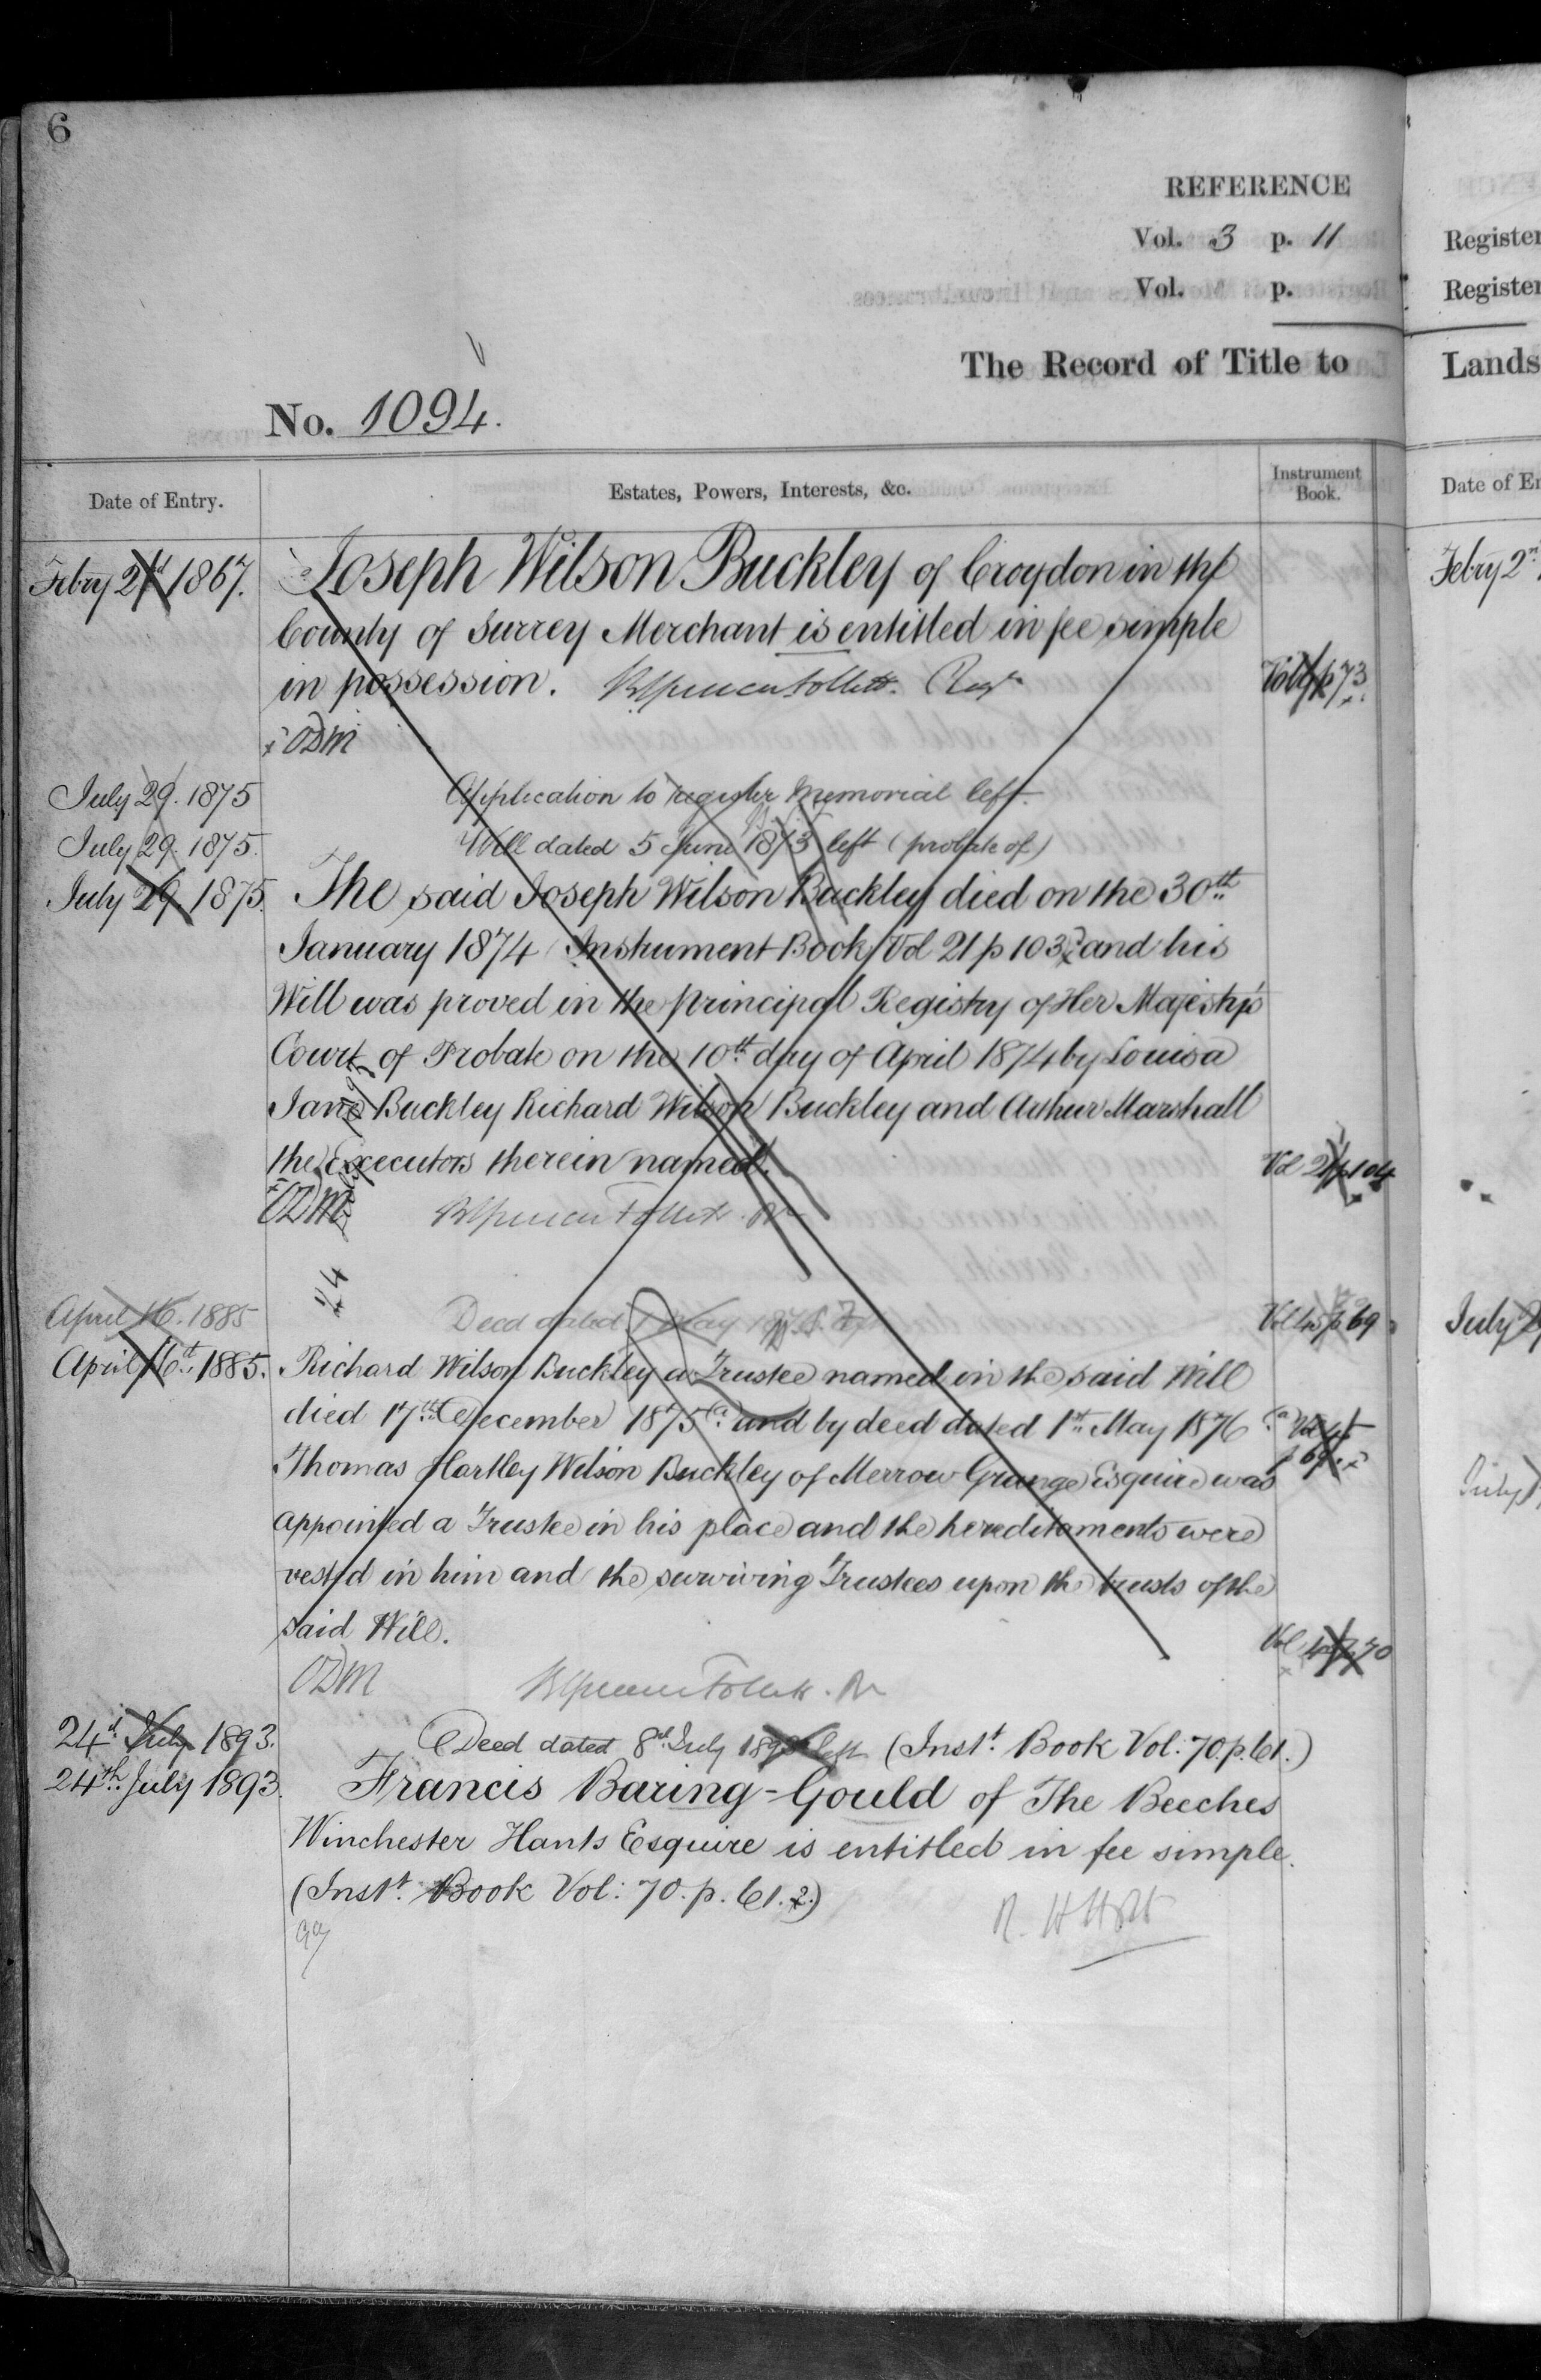 6
REFERENCE
Vol. 3 p. 11
Vol. p.
The Record of Title to
No. 1094.
Date of Entry.
Estates, Powers, Interests, &c.
Instrument Book.
Febry 2nd 1867.
Joseph Wilson Buckley of Croydon in the
County of Surrey Merchant is entitled in fee simple
in possession.
p 73
ODM
July 29. 1875
Application to register Memorial left.
July 29. 1875.
Will dated 5 June 1873 left (probate of)
July 29 1875.
The said Joseph Wilson Buckley died on the 30th
January 1874 (Instrument Book Vol 21 p 103) and his
Will was proved in the principal Registry of Her Majesty's
Court of Probate on the 10th day of April 1874 by Louisa
Jane Buckley Richard Wilson Buckley and Arthur Marshall
the Executors therein named.
Vol 21 p 104
ODM
April 16. 1885
Deed dated 1 May
Vol 45 p 69
April 16th 1885.
Richard Wilson Buckley a Trustee named in the said Will
died 17th December 1875 (a) and by deed dated 1st May 1876
(a) Vol 45
p 69
Thomas Hartley Wilson Buckley of Merrow Grange Esquire was
appointed a Trustee in his place and the hereditaments were
vested in him and the surviving Trustees upon the trusts of the
said Will.
Vol 45 p 70
ODM
24th July 1893.
Deed dated 8th July 1893 left (Inst. Book Vol: 70. p. 61.)
24th July 1893.
Francis Baring-Gould of The Beeches
Winchester Hants Esquire is entitled in fee simple.
(Inst. Book Vol: 70. p. 61. 2.)
Register
Register
Lands
Date of En
Febry 2n
July 2
July